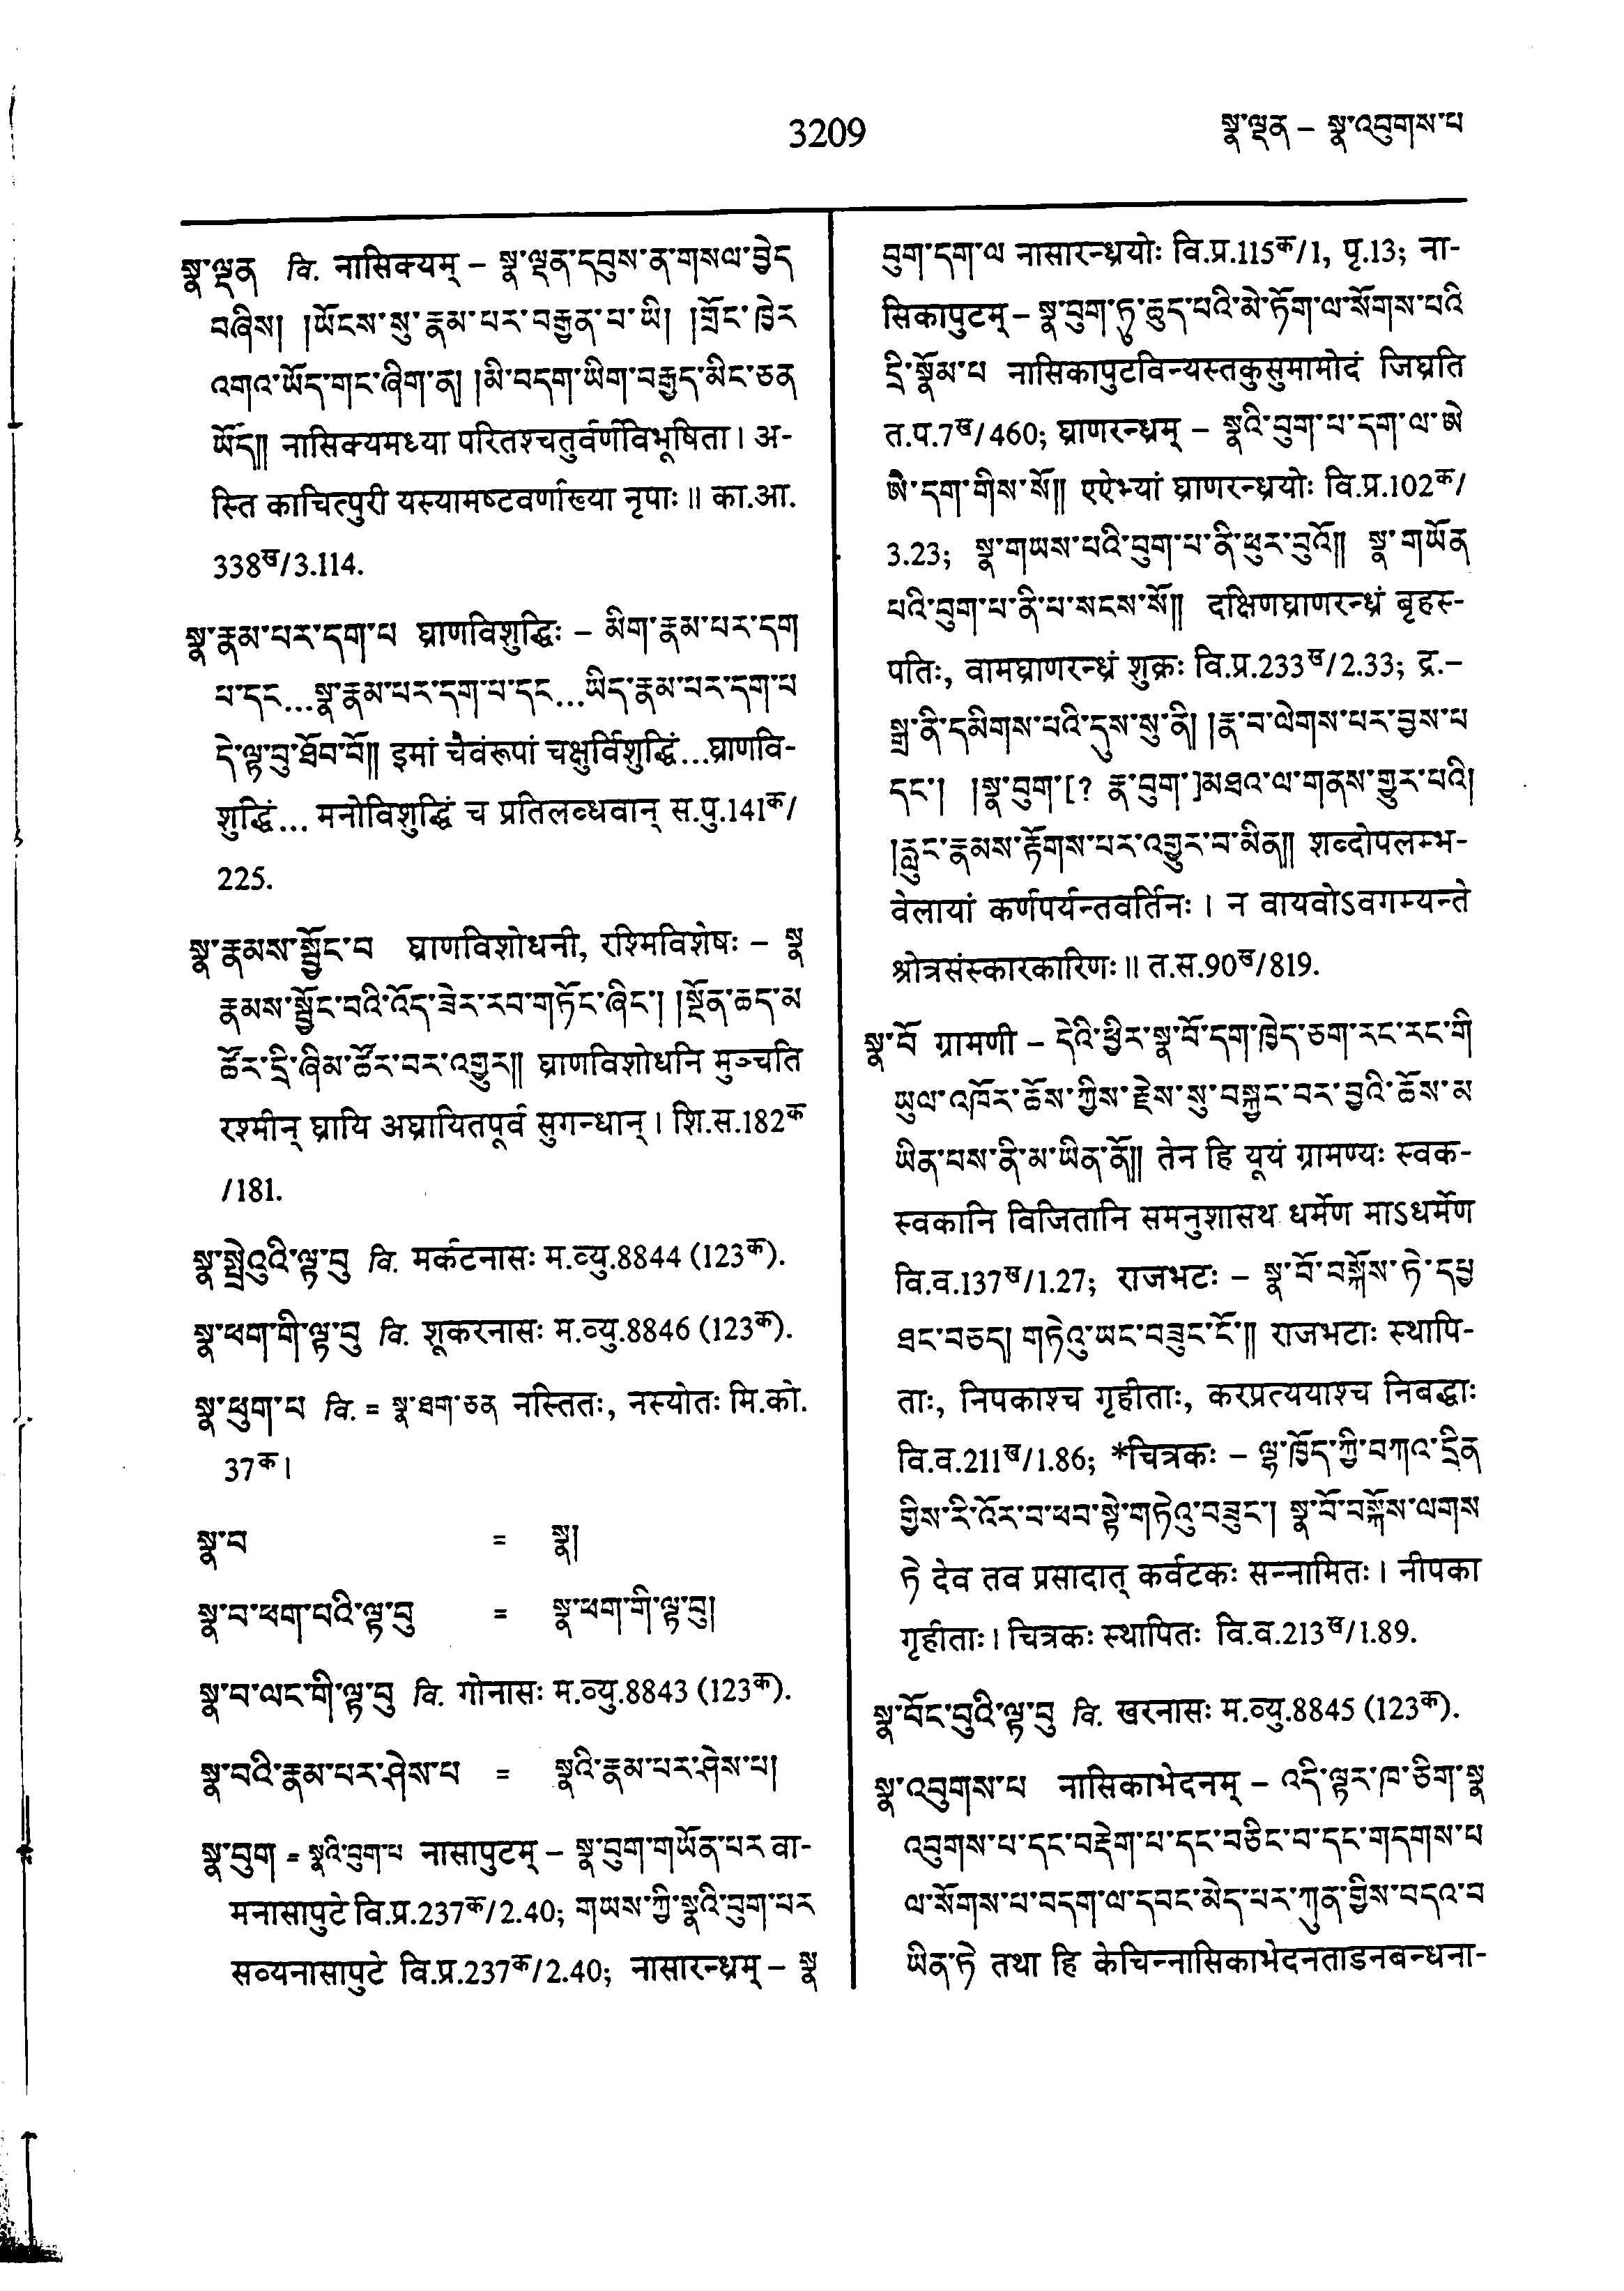 3209
སྣ་ལྡན – སྣ་འབུགས་པ
སྣ་ལྡན वि. नासिक्यम् – སྣ་ལྡན་དབུས་ན་གསལ་བྱེད
བཞིས། །ཡོངས་སུ་རྣམ་པར་བརྒྱན་པ་ཡི། །གྲོང་ཁྱེར
འགའ་ཡོད་གང་ཞིག་ན། །མི་བདག་ཡིག་བརྒྱད་མིང་ཅན
ཡོད།། नासिक्यमध्या परितश्चतुर्वर्णविभूषिता। अ-
स्ति काचित्पुरी यस्यामष्टवर्णाख्या नृपाः॥ का.आ.
338ख/3.114.
སྣ་རྣམ་པར་དག་པ घ्राणविशुद्धिः – མིག་རྣམ་པར་དག
པ་དང...སྣ་རྣམ་པར་དག་པ་དང...ཡིད་རྣམ་པར་དག་པ
དེ་ལྟ་བུ་ཐོབ་བོ།། इमां चैवंरूपां चक्षुर्विशुद्धिं...घ्राणवि-
शुद्धिं... मनोविशुद्धिं च प्रतिलब्धवान् स.पु.141क/
225.
སྣ་རྣམས་སྦྱོང་བ घ्राणविशोधनी, रश्मिविशेषः – སྣ
རྣམས་སྦྱོང་བའི་འོད་ཟེར་རབ་གཏོང་ཞིང་། །སྔོན་ཆད་མ
ཚོར་དྲི་ཞིམ་ཚོར་བར་འགྱུར།། घ्राणविशोधनि मुञ्चति
रश्मीन् घ्रायि अघ्रायितपूर्व सुगन्धान्। शि.स.182क
/181.
སྣ་སྤྲེའུའི་ལྟ་བུ वि. मर्कटनासः म.व्यु.8844 (123क).
སྣ་ཕག་གི་ལྟ་བུ वि. शूकरनासः म.व्यु.8846 (123क).
སྣ་ཕུག་པ वि. = སྣ་ཐག་ཅན नस्तितः, नस्योतः मि.को.
37क।
སྣ་བ = སྣ།
སྣ་བ་ཕག་པའི་ལྟ་བུ = སྣ་ཕག་གི་ལྟ་བུ།
སྣ་བ་ལང་གི་ལྟ་བུ वि. गोनासः म.व्यु.8843 (123क).
སྣ་བའི་རྣམ་པར་ཤེས་པ = སྣའི་རྣམ་པར་ཤེས་པ།
སྣ་བུག = སྣའི་བུག་པ नासापुटम् – སྣ་བུག་གཡོན་པར वा-
मनासापुटे वि.प्र.237क/2.40; གཡས་ཀྱི་སྣའི་བུག་པར
सव्यनासापुटे वि.प्र.237क/2.40; नासारन्ध्रम् – སྣ
བུག་དག་ལ नासारन्ध्रयोः वि.प्र.115क/1, पृ.13; ना-
सिकापुटम् – སྣ་བུག་ཏུ་ཆུད་པའི་མེ་ཏོག་ལ་སོགས་པའི
དྲི་སྣོམ་པ नासिकापुटविन्यस्तकुसुमामोदं जिघ्रति
त.प.7ख/460; घ्राणरन्ध्रम् – སྣའི་བུག་པ་དག་ལ་ཨེ
ཨཻ་དག་གིས་སོ།། एऐभ्यां घ्राणरन्ध्रयोः वि.प्र.102क/
3.23; སྣ་གཡས་པའི་བུག་པ་ནི་ཕུར་བུའོ།། སྣ་གཡོན
པའི་བུག་པ་ནི་པ་སངས་སོ།། दक्षिणघ्राणरन्ध्रं बृहस्-
पतिः, वामघ्राणरन्ध्रं शुक्रः वि.प्र.233ख/2.33; द्र.–
སྒྲ་ནི་དམིགས་པའི་དུས་སུ་ནི། །རྣ་བ་ལེགས་པར་བྱས་པ
དང་། །སྣ་བུག་[? རྣ་བུག་]མཐའ་ལ་གནས་གྱུར་པའི།
།རླུང་རྣམས་རྟོགས་པར་འགྱུར་བ་མིན།། शब्दोपलम्भ-
वेलायां कर्णपर्यन्तवर्तिनः। न वायवोऽवगम्यन्ते
श्रोत्रसंस्कारकारिणः॥ त.स.90ख/819.
སྣ་བོ ग्रामणी – དེའི་ཕྱིར་སྣ་བོ་དག་ཁྱེད་ཅག་རང་རང་གི
ཡུལ་འཁོར་ཆོས་ཀྱིས་རྗེས་སུ་བསྐྱང་བར་བྱའི་ཆོས་མ
ཡིན་པས་ནི་མ་ཡིན་ནོ།། तेन हि यूयं ग्रामण्यः स्वक-
स्वकानि विजितानि समनुशासथ धर्मेण माऽधर्मेण
वि.व.137ख/1.27; राजभटः – སྣ་བོ་བསྐོས་ཏེ་དཔྱ
ཐང་བཅད། གཏེའུ་ཡང་བཟུང་ངོ་།། राजभटाः स्थापि-
ताः, निपकाश्च गृहीताः, करप्रत्ययाश्च निबद्धाः
वि.व.211ख/1.86; *चित्रकः – ལྷ་ཁྱོད་ཀྱི་བཀའ་དྲིན
གྱིས་རི་འོར་བ་ཕབ་སྟེ་གཏེའུ་བཟུང་། སྣ་བོ་བསྐོས་ལགས
ཏེ देव तव प्रसादात् कर्वटकः सन्नामितः। नीपका
गृहीताः। चित्रकः स्थापितः वि.व.213ख/1.89.
སྣ་བོང་བུའི་ལྟ་བུ वि. खरनासः म.व्यु.8845 (123क).
སྣ་འབུགས་པ नासिकाभेदनम् – འདི་ལྟར་ཁ་ཅིག་སྣ
འབུགས་པ་དང་བརྡེག་པ་དང་བཅིང་བ་དང་གདགས་པ
ལ་སོགས་པ་བདག་ལ་དབང་མེད་པར་ཀུན་གྱིས་བདའ་བ
ཡིན་ཏེ तथा हि केचिन्नासिकाभेदनताडनबन्धना-